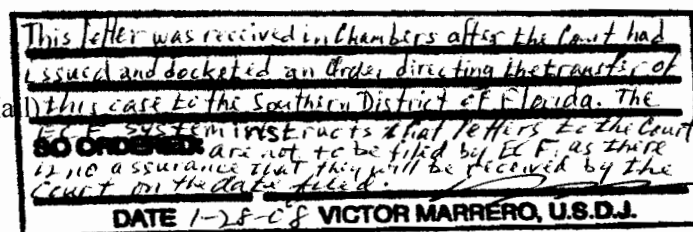 This letter was received in Chambers after the Court had
issued and docketed an Order directing the transfer of
this case to the Southern District of Florida. The
ECF system instructs that letters to the Court
SO ORDERED: are not to be filed by ECF as there
is no assurance that they will be received by the
Court on the date filed.
DATE 1-28-08 VICTOR MARRERO, U.S.D.J.